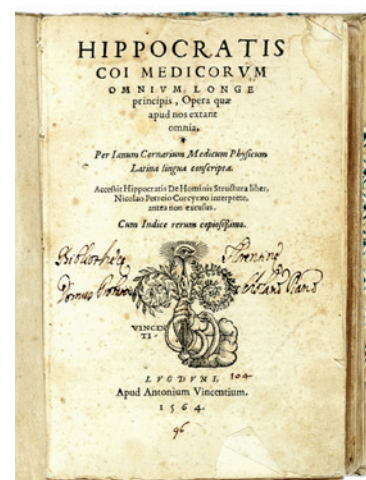 HIPPOCRATIS
COI MEDICORVM
OMNIVM LONGE
principis, Opera quæ
apud nos extant
omnia.
Per Ianum Cornarium Medicum Physicum
Latina lingua conscripta.
Accessit Hippocratis De Hominis Structura liber,
Nicolao Petreio Corcyræo interprete,
antea non excusus.
Cum Indice rerum copiosissimo.
Bibliothecę
Domus
VINCEN
TI.
LVGDVNI, 104
Apud Antonium Vincentium.
1564.
96